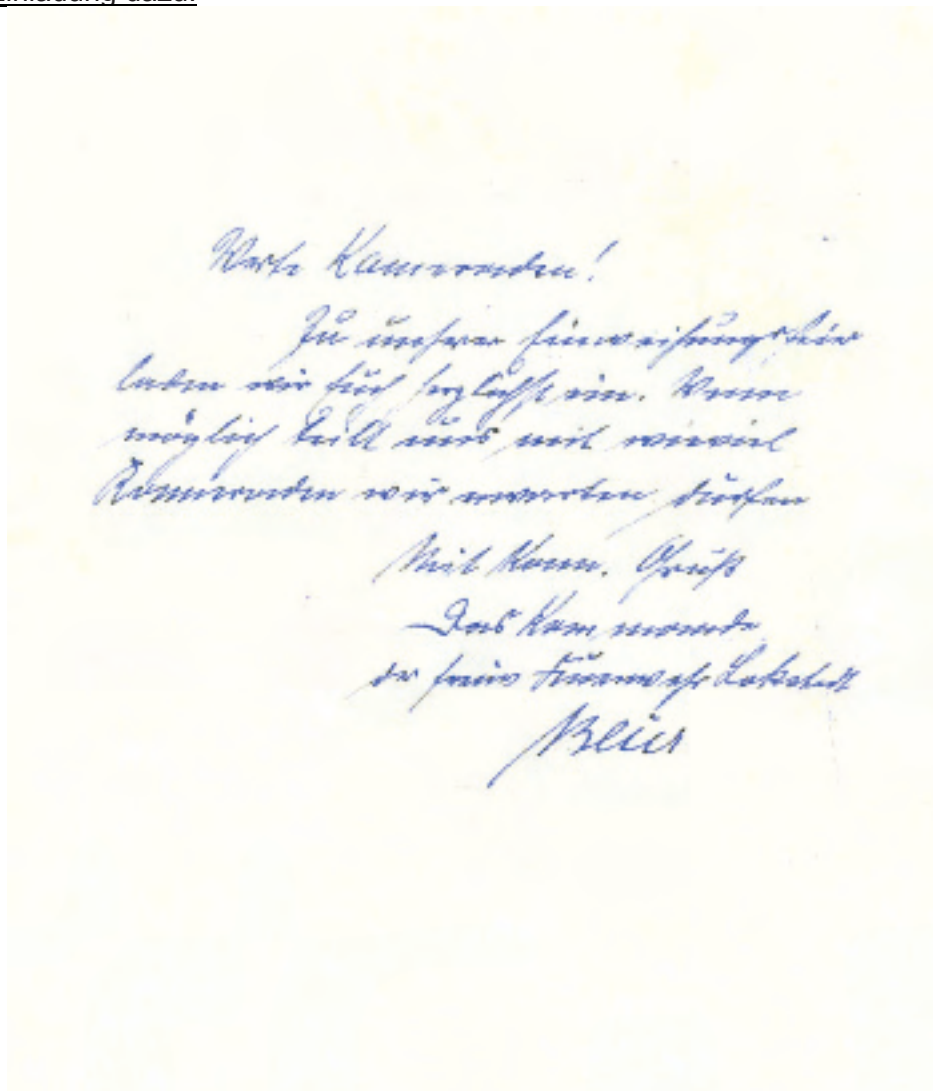 Einladung dazu:
Werte Kameraden!
Zu unserer Einweihungsfeier
laden wir Euch herzlichst ein. Wenn
möglich teilt uns mit wieviel
Kameraden wir erwarten dürfen
Mit Kam. Gruß
Das Kommando
der freiw Feuerwehr Lokstedt